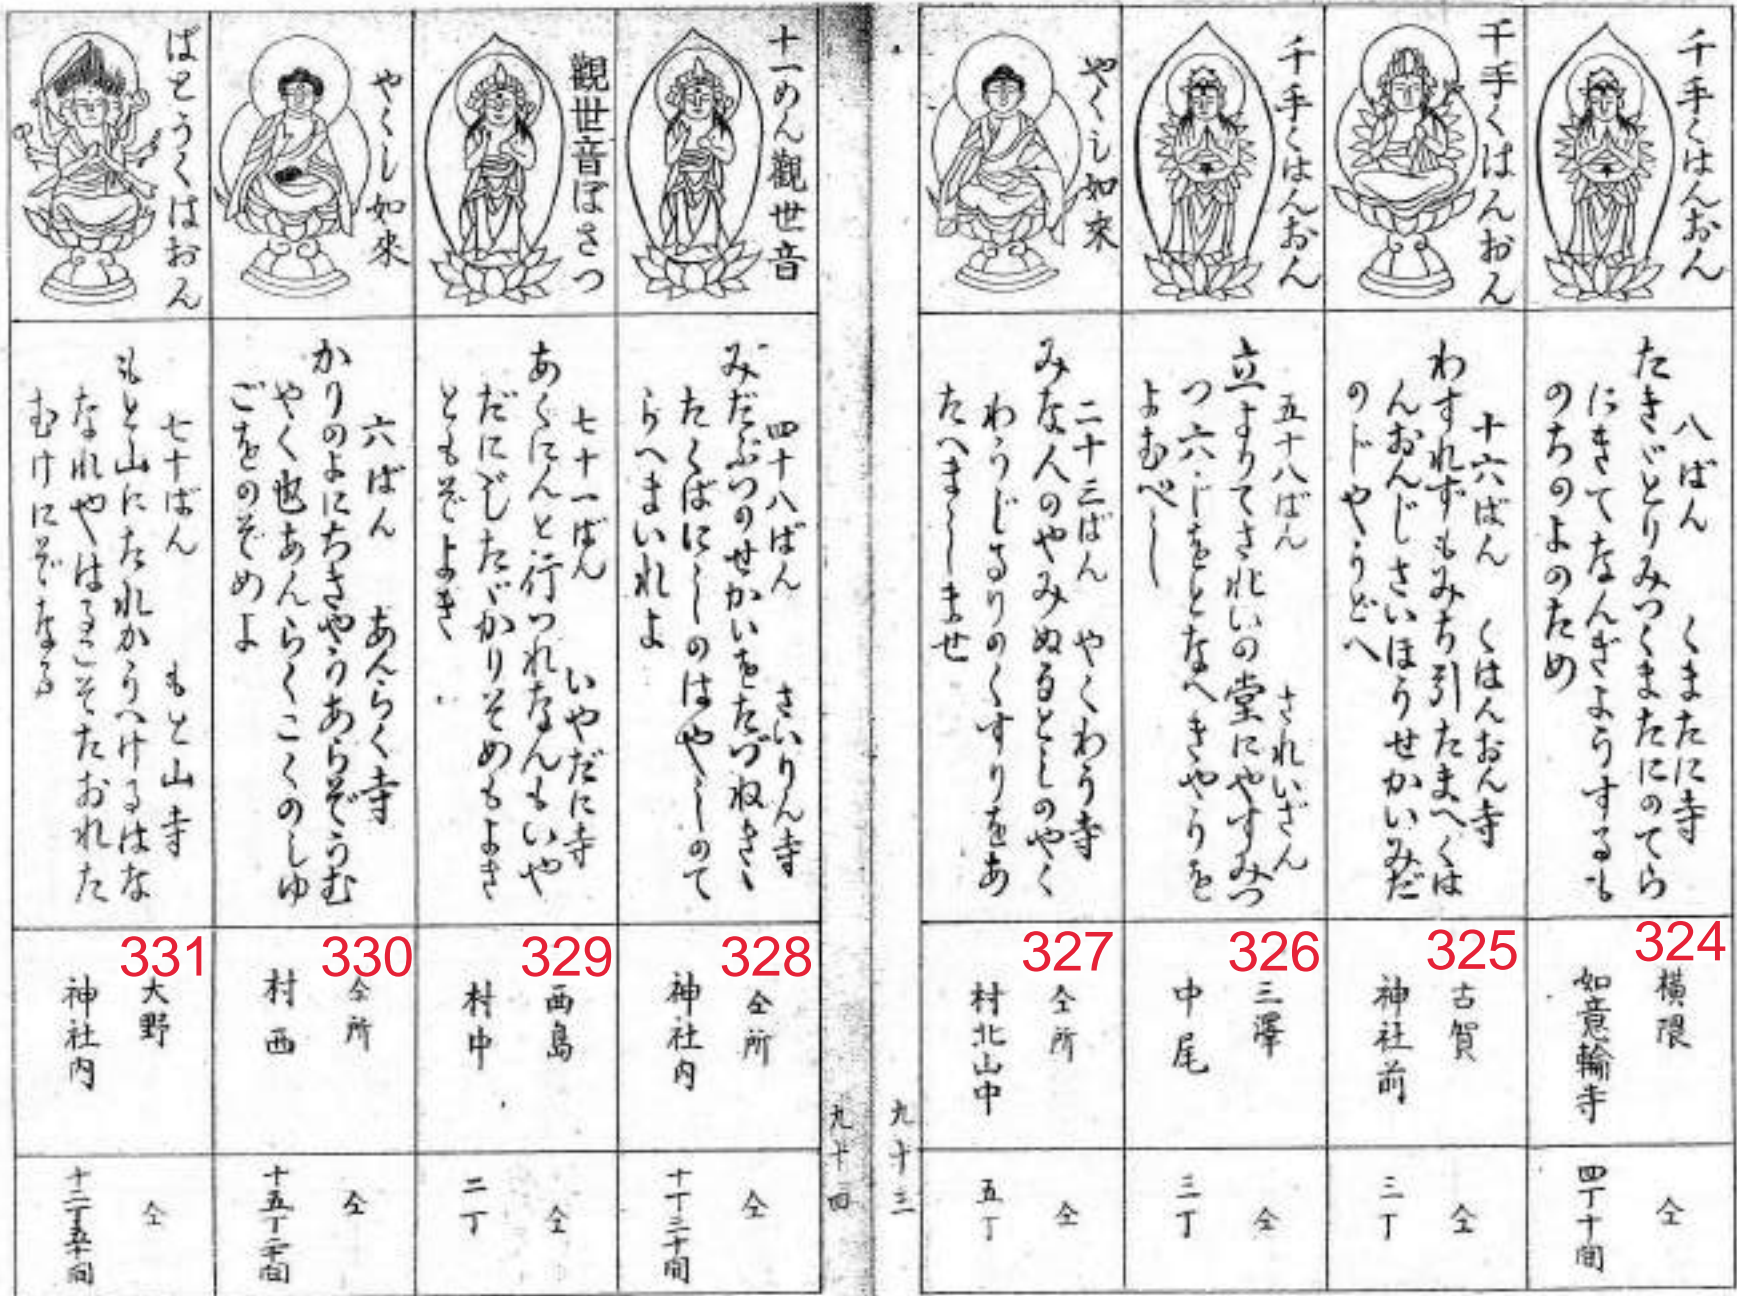 千手くはんおん
八ばん　くまたに寺
たきゞとりみつくまたにのてら
にきてなんぎようするも
のちのよのため
324
横隈
如意輪寺
仝
四丁十間
千手くはんおん
十六ばん　くはんおん寺
わすれずもみち引たまへくは
んおんじさいほうせかいみだ
のじやうどへ
325
古賀
神社前
仝
三丁
千手くはんおん
五十八ばん　されいざん
立よりてされいの堂にやすみつ
つ六じをとなへきやうを
よむべし
326
三澤
中尾
仝
三丁
やくし如来
二十三ばん　やくわう寺
みな人のやみぬるとしのやく
わうじるりのくすりをあ
たへましませ
327
仝所
村北山中
仝
五丁
九十三
十一めん觀世音
四十八ばん　さいりん寺
みだぶつのせかいをたづねきゝ
たくばにしのはやしのて
らへまいれよ
328
仝所
神社内
仝
十丁三十間
觀世音ぼさつ
七十一ばん　いやだに寺
あくにんと行つれなんもいや
だにじたゞかりそめもよき
ともぞよき
329
西島
村中
仝
二丁
やくし如來
六ばん　あんらく寺
かりのよにちきやうあらそうむ
やく也あんらくこくのしゆ
ごをのぞめよ
330
仝所
村西
仝
十五丁二十間
ばとうくはおん
七十ばん　もと山寺
もと山にたれかうへけるはな
なれやはるこそたおれた
むけにぞなる
331
大野
神社内
仝
十二丁五十間
九十四